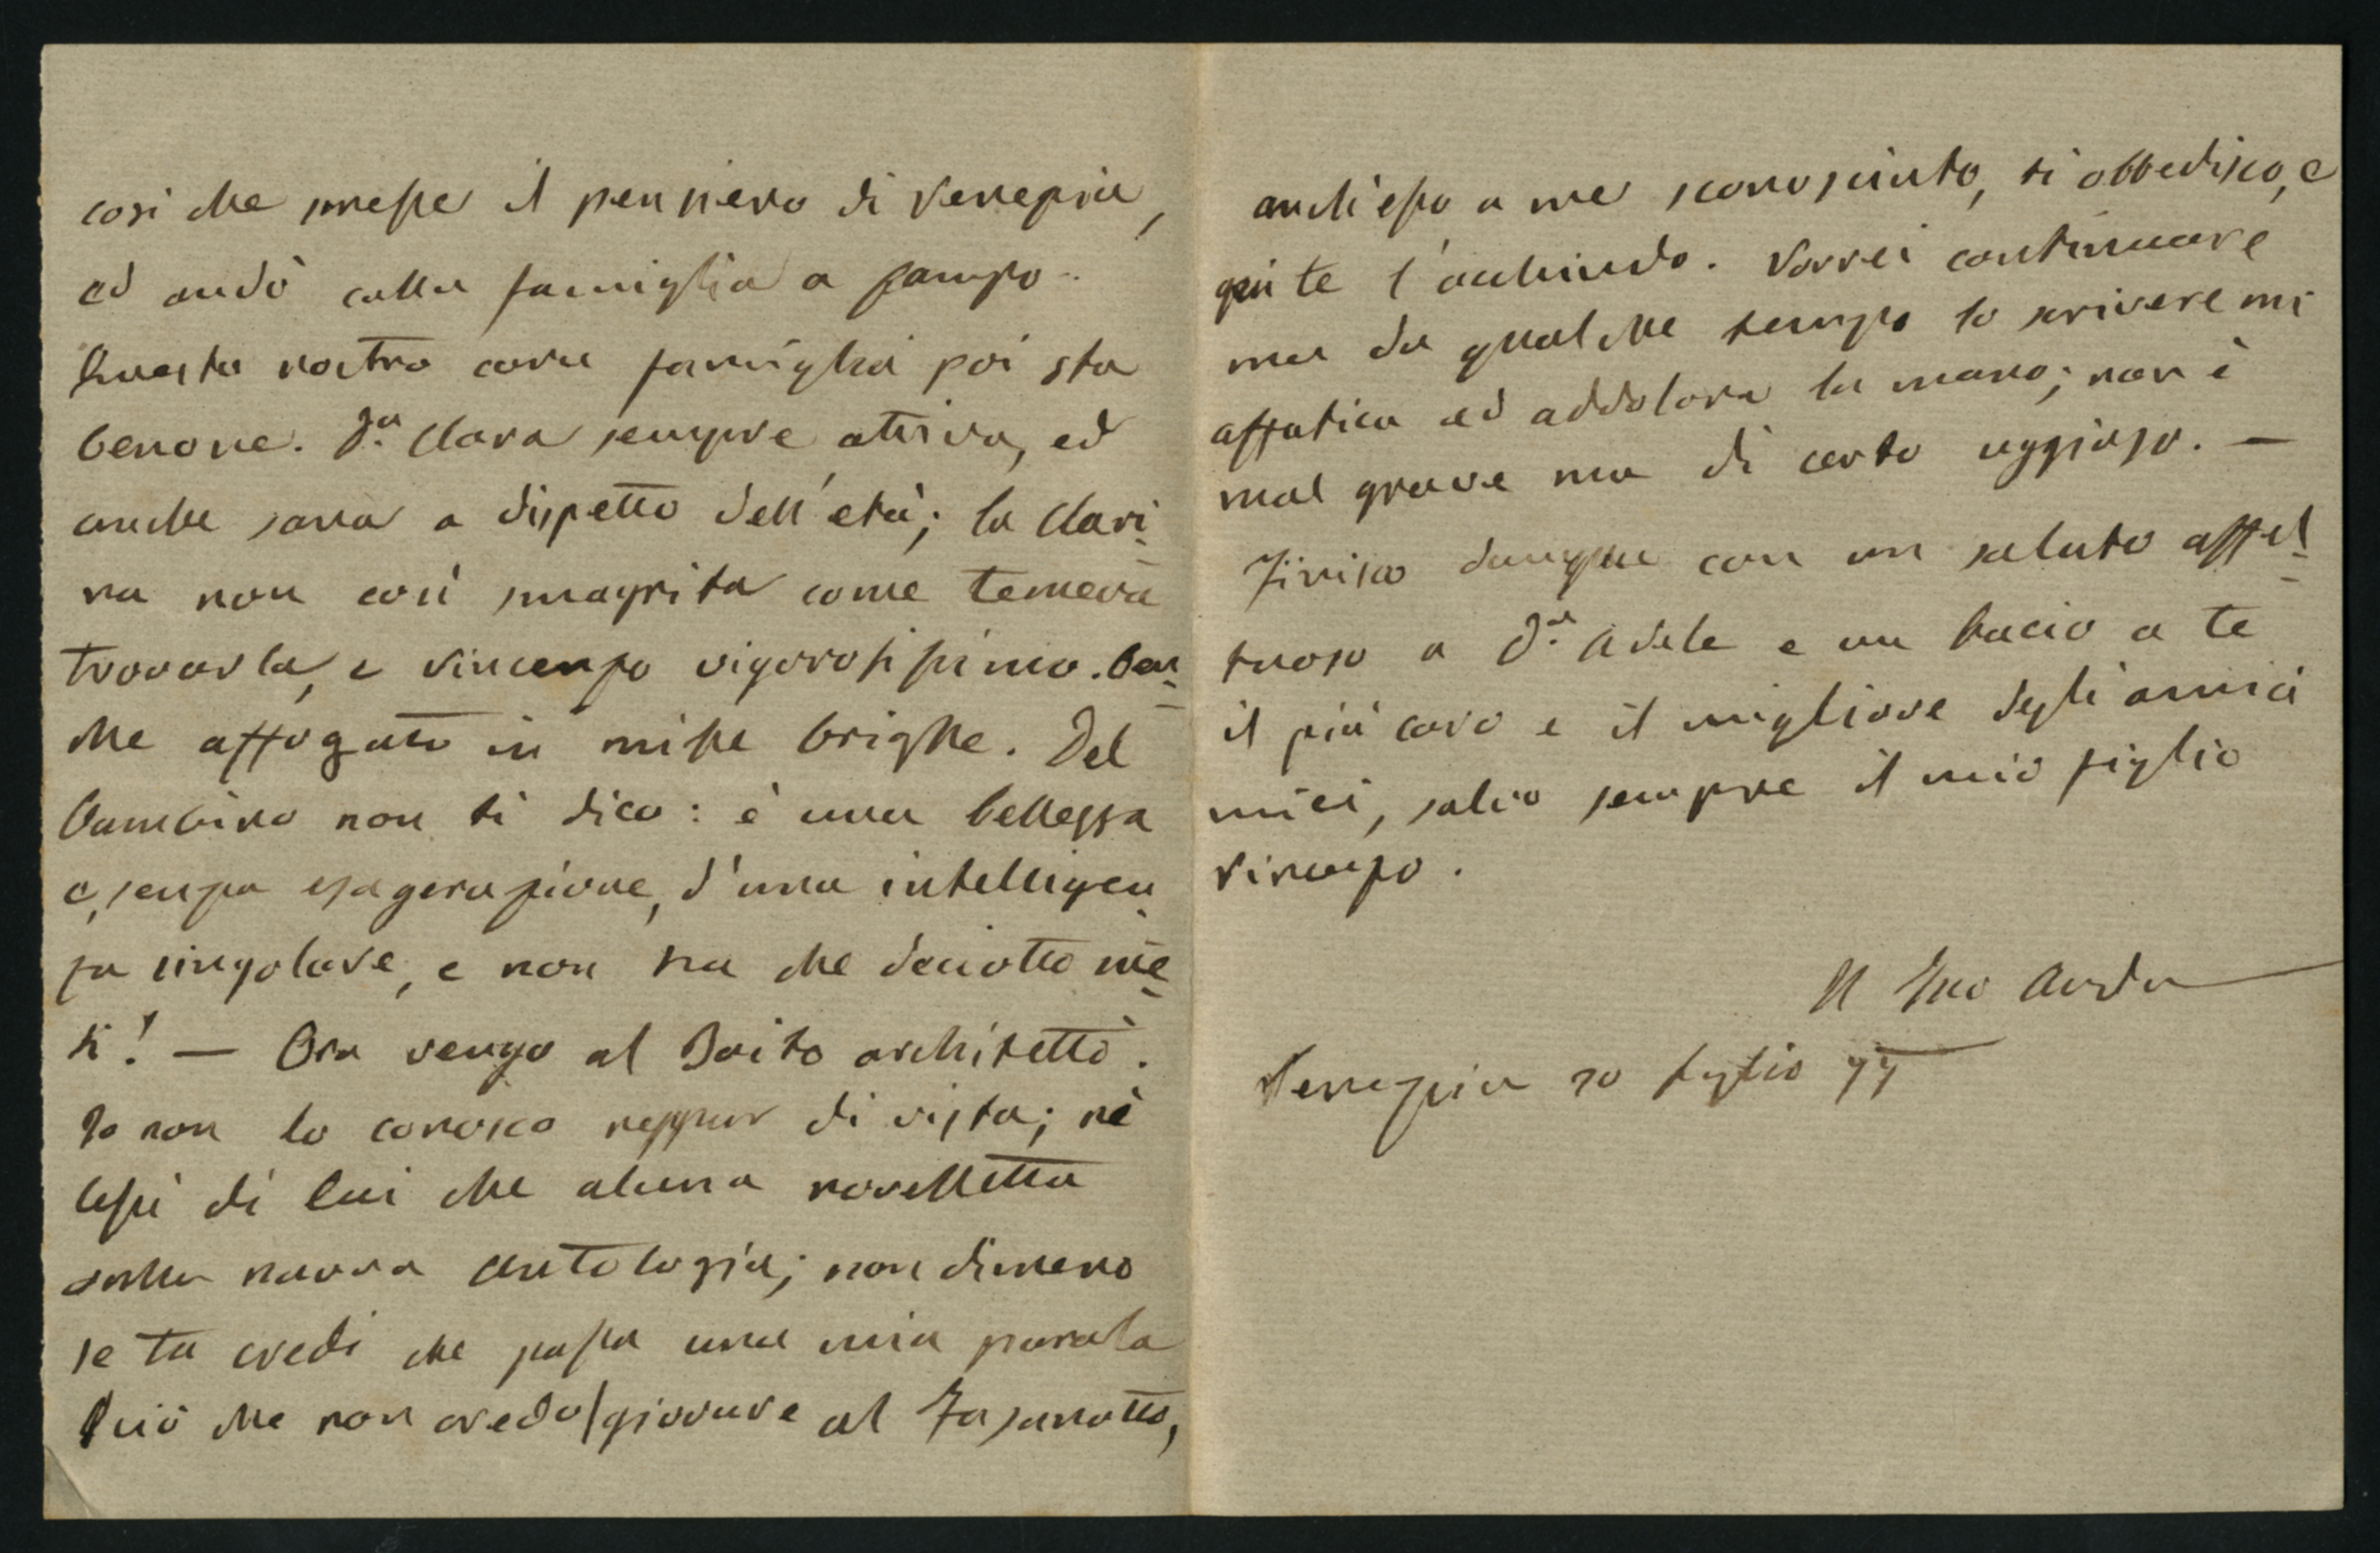 così che smesse il pensiero di Venezia,
ed andò colla famiglia a
Questa nostra cara famiglia poi sta
benone. D.a Clara sempre attiva, ed
anche sana a dispetto dell'età; la Clari-
na non così smagrita come temeva
trovarla, e Vincenzo vigorosissimo. Ben-
che affogato in mille brighe. Del
bambino non ti dico: è una bellezza
e, senza esagerazione, d'una intelligen-
za singolare, e non ha che deciotto me-
si! — Ora vengo al Boito architetto.
Io non lo conosco neppur di vista; nè
lessi di lui che alcuna novelletta
sulla nuova antologia; non dimeno
se tu credi che possa una mia parola
(ciò che non credo) giovare al Fasanotto,
anch'esso a me sconosciuto, ti obbedisco, e
qui te l'acchiudo. Vorrei continuare
ma da qualche tempo lo scrivere mi
affatica ed addolora la mano; non è
mal grave ma di certo uggioso. —
Finisco dunque con un saluto affet-
tuoso a D.a Adele e un bacio a te
il più caro e il migliore degli amici
miei, salvo sempre il mio figlio
Vincenzo.
Il Tuo
Venezia 20 luglio 77